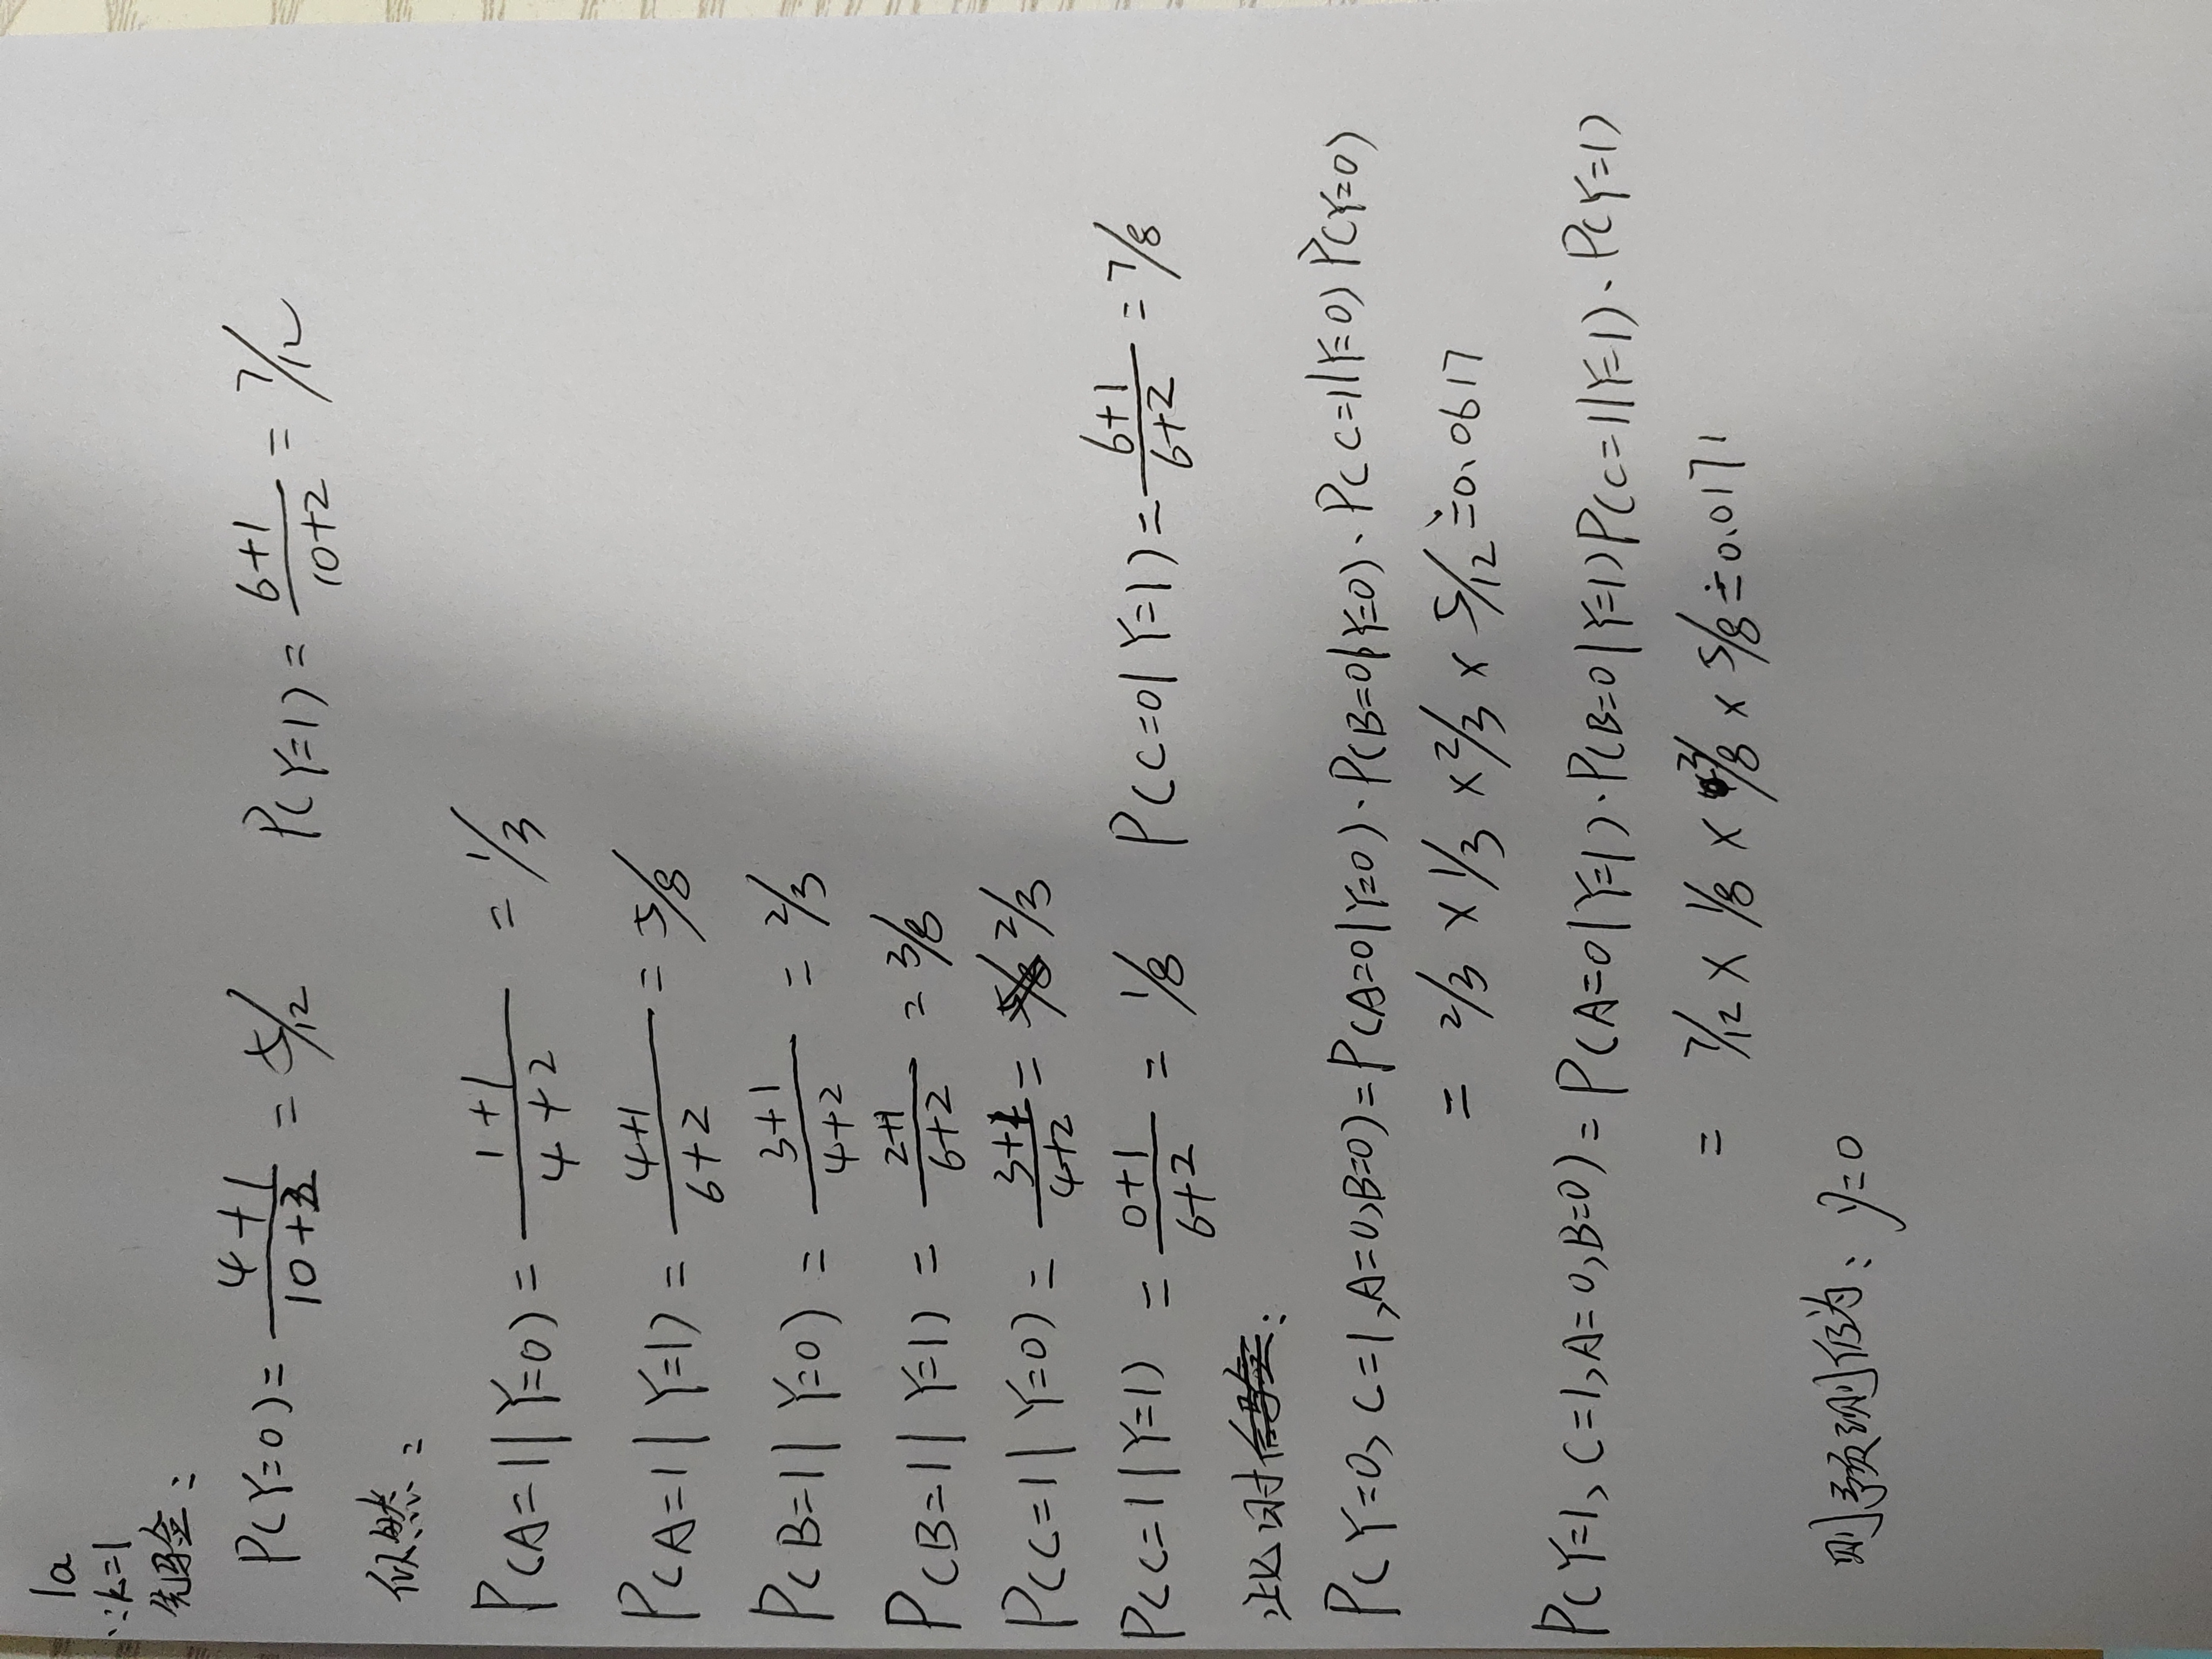 1a
∵k=1
先验:
P(Y=0) = (4+1)/(10+2) = 5/12 P(Y=1) = (6+1)/(10+2) = 7/12
似然:
P(A=1|Y=0) = (1+1)/(4+2) = 1/3
P(A=1|Y=1) = (4+1)/(6+2) = 5/8
P(B=1|Y=0) = (3+1)/(4+2) = 2/3
P(B=1|Y=1) = (2+1)/(6+2) = 3/8
P(C=1|Y=0) = (3+1)/(4+2) = 2/3
P(C=1|Y=1) = (0+1)/(6+2) = 1/8 P(C=0|Y=1) = (6+1)/(6+2) = 7/8
此时:
P(Y=0, C=1, A=0, B=0) = P(A=0|Y=0)·P(B=0|Y=0)·P(C=1|Y=0)P(Y=0)
= 2/3 × 1/3 × 2/3 × 5/12 ≐ 0.0617
P(Y=1, C=1, A=0, B=0) = P(A=0|Y=1)·P(B=0|Y=1)P(C=1|Y=1)·P(Y=1)
= 7/12 × 1/8 × 3/8 × 5/8 ≐ 0.0171
则预测值为: y=0